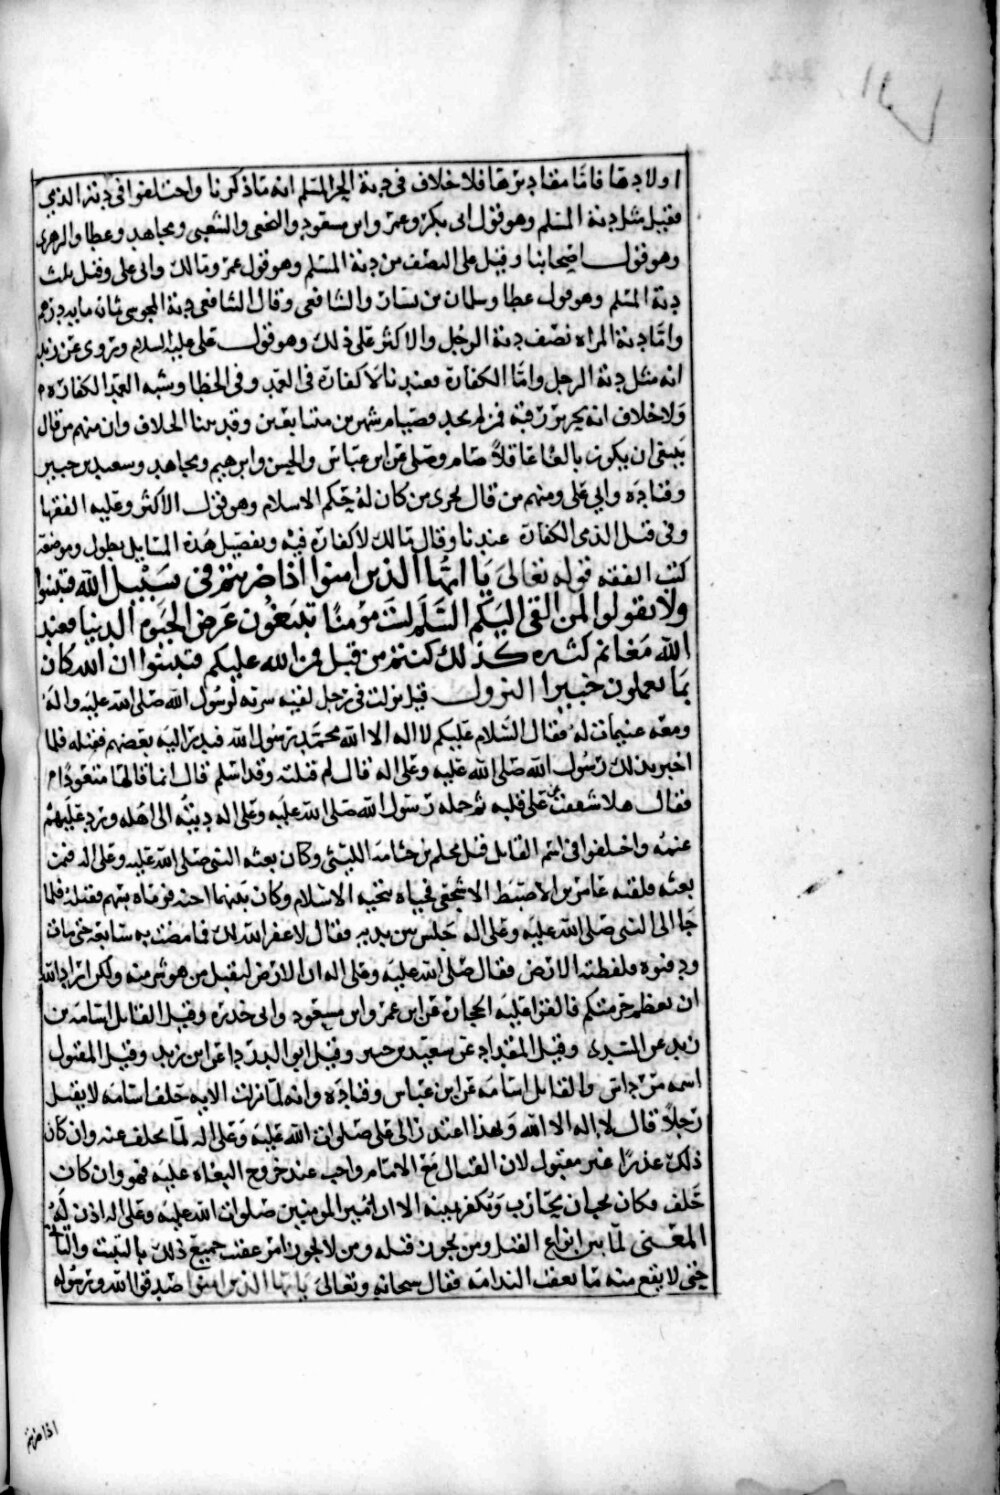 اولادها فاما مقاديرها فلا خلاف في دية الحر المسلم انه ما ذكرنا واختلفوا في دية الذمي
فقيل مثل دية المسلم وهو قول ابي بكر وعمر وابن مسعود والنخعي والشعبي ومجاهد وعطا والزهري
وهو قول اصحابنا وقيل على النصف من دية المسلم وهو قول عمر ومالك وابي علي وقيل ثلث
دية المسلم وهو قول عطا وسلمان بن يسار والشافعي وقال الشافعي دية المجوسي ثمان مايه درهم
واما دية المراه نصف دية الرجل والاكثر على ذلك وهو قول علي عليه السلام وتروى عن زيد
انه مثل دية الرجل واما الكفارة فعندنا لا كفارة في العمد وفي الخطا وشبه العمد الكفاره
ولا خلاف انه يحرير رقبة فمن لم يجد فصيام شهرين متتابعين وقد بينا الخلاف وان منهم من قال
ينبغي ان يكون بالغا عاقلا صام وصلى عن ابن عباس والحسن وابرهيم ومجاهد وسعيد بن جبير
وقتادة وابي علي ومنهم من قال يجزي من كان له حكم الاسلام وهو قول الاكثر وعليه الفقها
وفي قتل الذمي الكفارة عندنا وقال مالك لا كفارة فيه وتفصيل هذه المسايل يطول وموضعه
كتب الفقه قوله تعالى يا ايها الذين امنوا اذا ضربتم في سبيل الله فتبينوا
ولا تقولوا لمن القى اليكم السلم لست مؤمنا تبتغون عرض الحيوة الدنيا فعند
الله مغانم كثيرة كذلك كنتم من قبل فمن الله عليكم فتبينوا ان الله كان
بما تعملون خبيرا النزول قيل نزلت في رجل لقيته سرية لرسول الله صلى الله عليه واله
ومعه غنيمات له فقال السلام عليكم لا اله الا الله محمد رسول الله فبدر اليه بعضهم فقتله فلما
اخبر بذلك رسول الله صلى الله عليه وعلى اله قال لم قتلته وقد اسلم قال انما قالها متعوذا
فقال هلا شققت عن على قلبه ثم حمله رسول الله صلى الله عليه وعلى اله ديته الى اهله ورد عليهم
غنمه واختلفوا في اسم القاتل قيل محلم بن جثامة الليثي وكان بعثه النبي صلى الله عليه وعلى اله فيمن
بعثه فلقيه عامر بن الاضبط الاشجعي فحياه بتحية الاسلام وكان بينهما احنة فرماه بسهم فقتله فلما
جا الى النبي صلى الله عليه وعلى اله جلس بين يديه فقال لا غفر الله لك فما مضت به سابعة حتى مات
ودفنوه فلفظته الارض فقال صلى الله عليه وعلى اله ان الارض لتقبل من هو شر منه ولكن اراد الله
ان يعظم حرمتكم فالقوا عليه الحجارة عن ابن عمر وابن مسعود وابي حدرد وقيل القاتل اسامة بن
زيد عن السدي وقيل المقداد عن سعيد بن جبير وقيل ابو الدردا عن ابن زيد وقيل المقتول
اسمه مرداس والقاتل اسامة عن ابن عباس وقتادة وانه لما نزلت الايه حلف اسامة لا يقتل
رجلا قال لا اله الا الله وبهذا اعتذر الى علي صلوات الله عليه وعلى اله لما تخلف عنه وان كان
ذلك عذرا غير مقبول لان القتال مع الامام واجب عند خروج البغاه عليه فهو وان كان
حلف فكان يجب ان يحارب وتكفر يمينه الا ان امير المومنين صلوات الله عليه وعلى اله اذن له
المعنى لما بين انواع القتل ومن يجوز قتله ومن لا يجوز امر عقيب جميع ذلك بالتثبت والتاني
حتى لا يقع منه ما يعقب الندامة فقال سبحانه وتعالى يا ايها الذين امنوا صدقوا الله ورسوله
اذا ضربتم